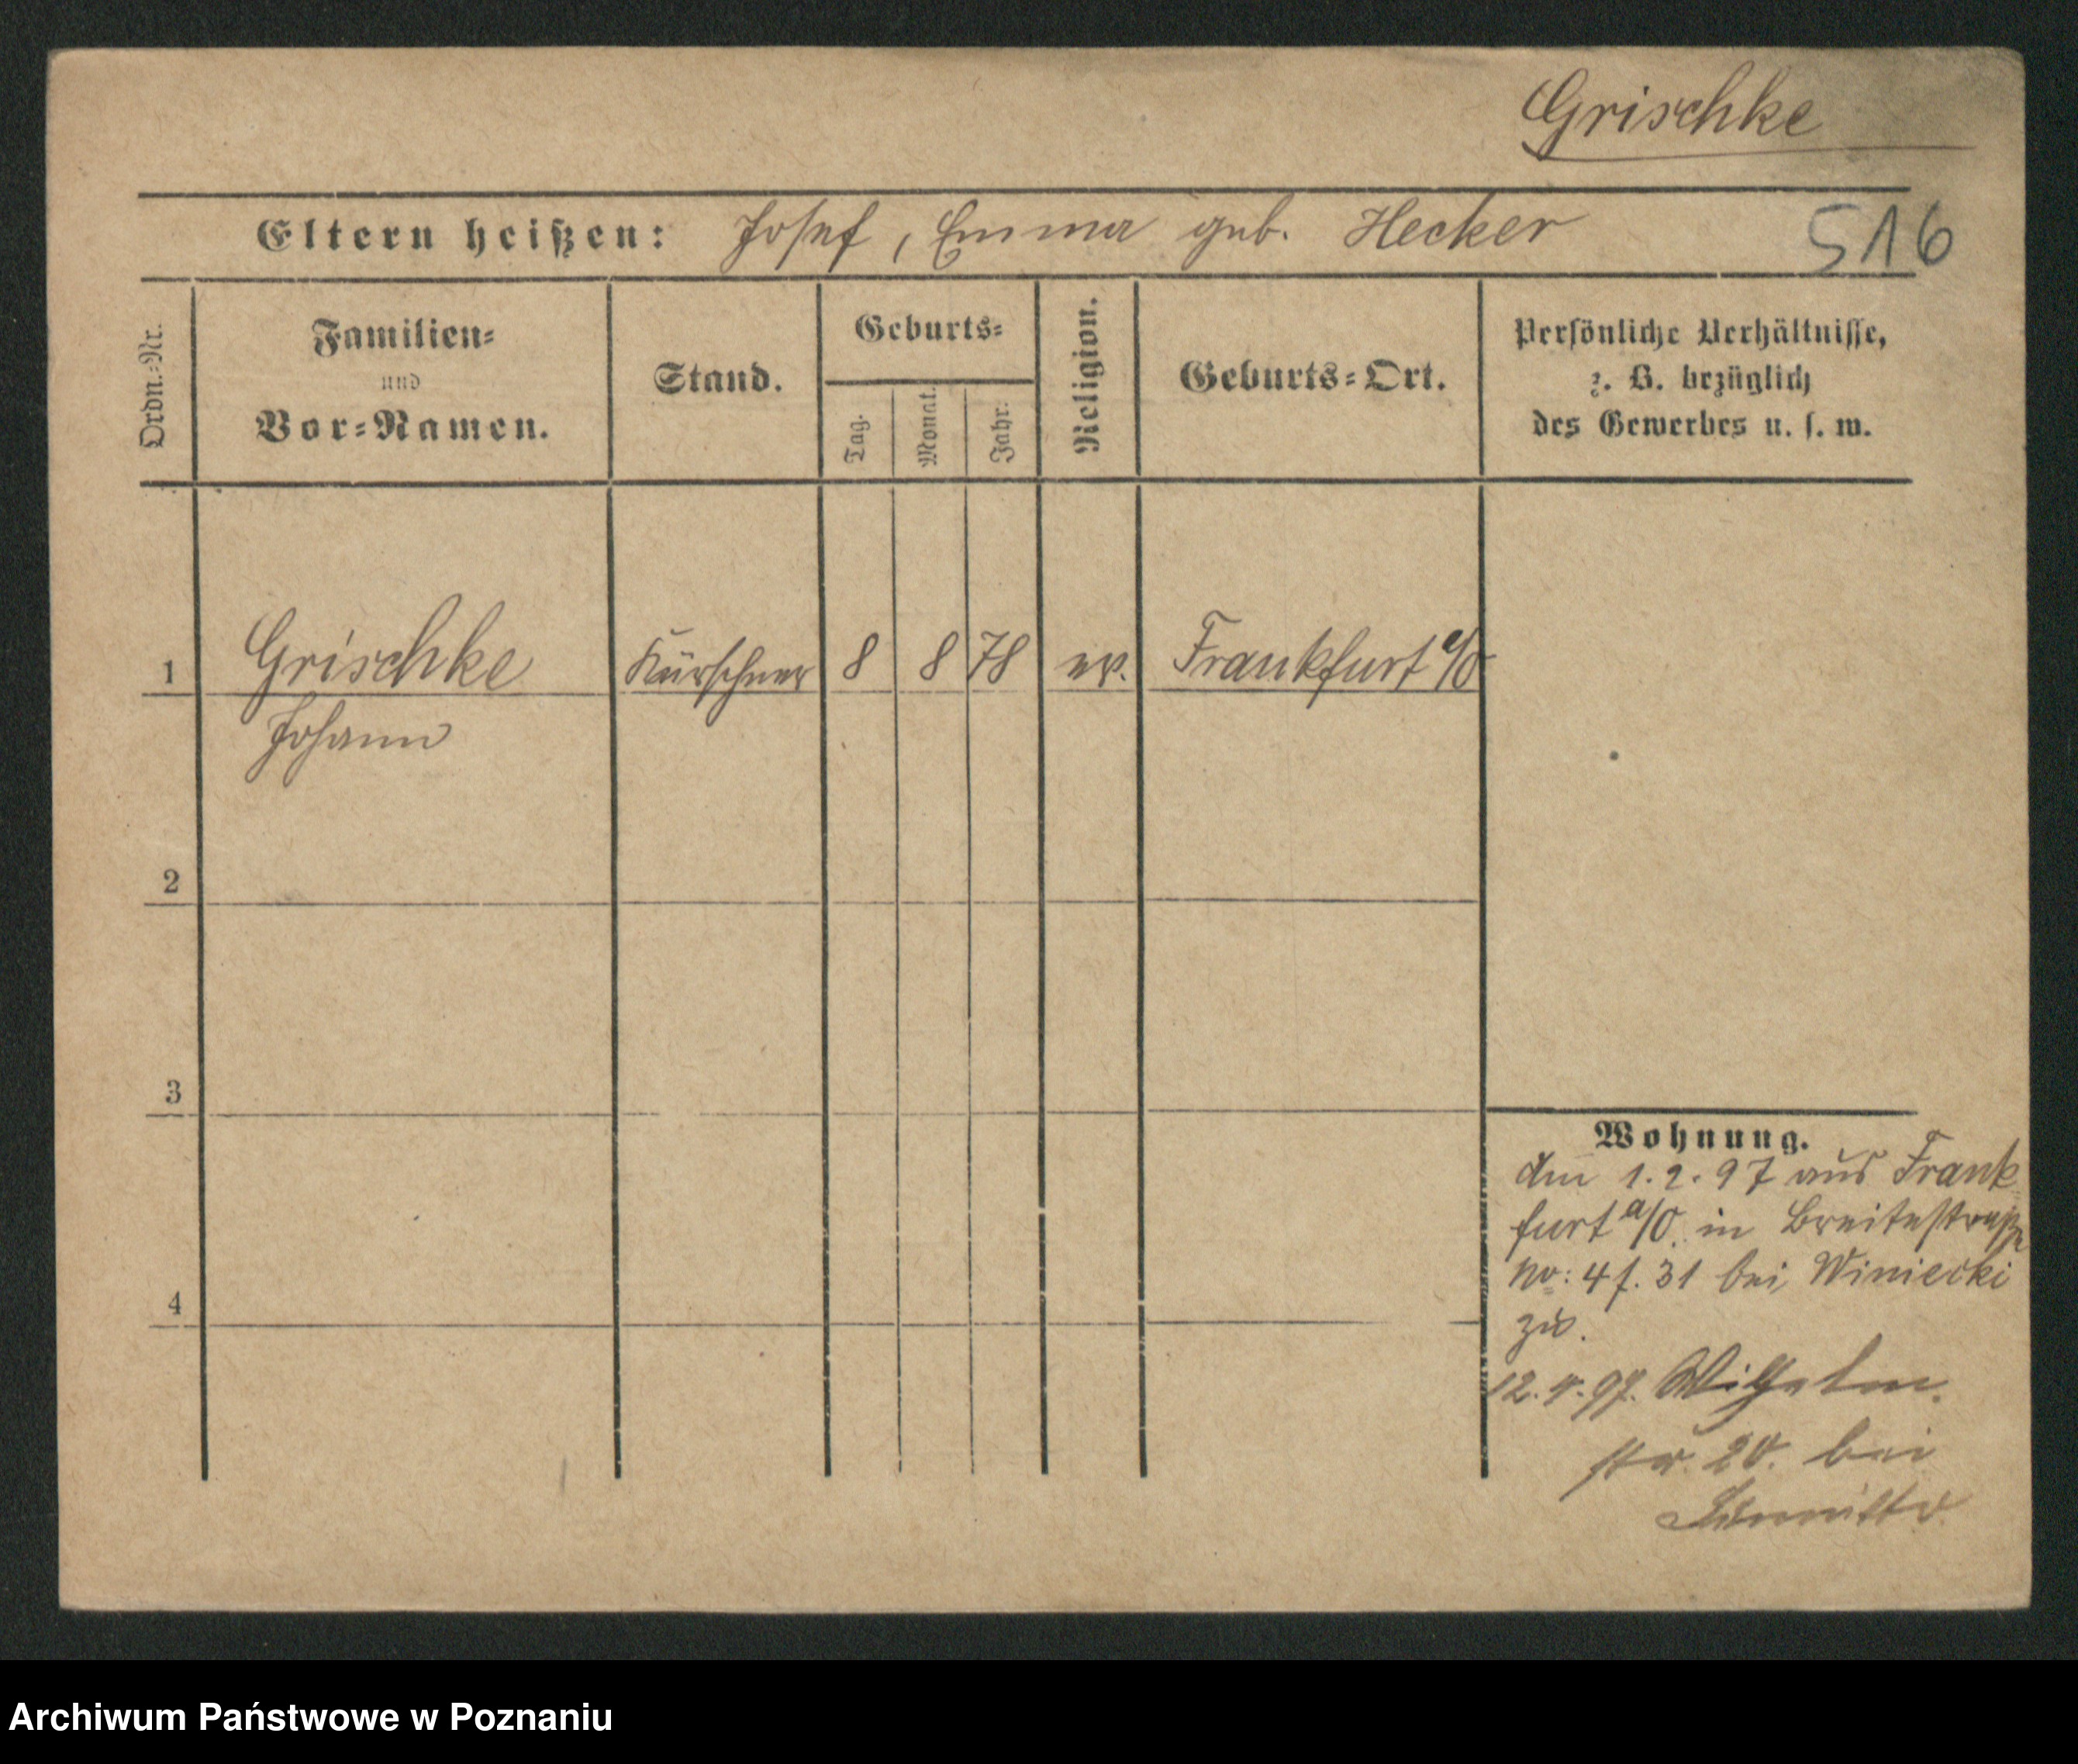 Grischke
Eltern heißen: Josef, Emma geb. Hecker
516
Ordn.-Nr.
Familien-
und
Vor-Namen.
Stand.
Geburts-
Tag.
Monat.
Jahr.
Religion.
Geburts-Ort.
Persönliche Verhältnisse,
z. B. bezüglich
des Gewerbes u. s. w.
1 Grischke Kürschner 8 8 78 ev. Frankfurt a/O
Johann
2
3
4
Wohnung.
Am 1.2.97 aus Frank
furt a/O. in Breitestraße
No: 4 f. 31 bei Winiecki
zu.
12.4.97. Wilhelm.
str 20. bei
Archiwum Państwowe w Poznaniu